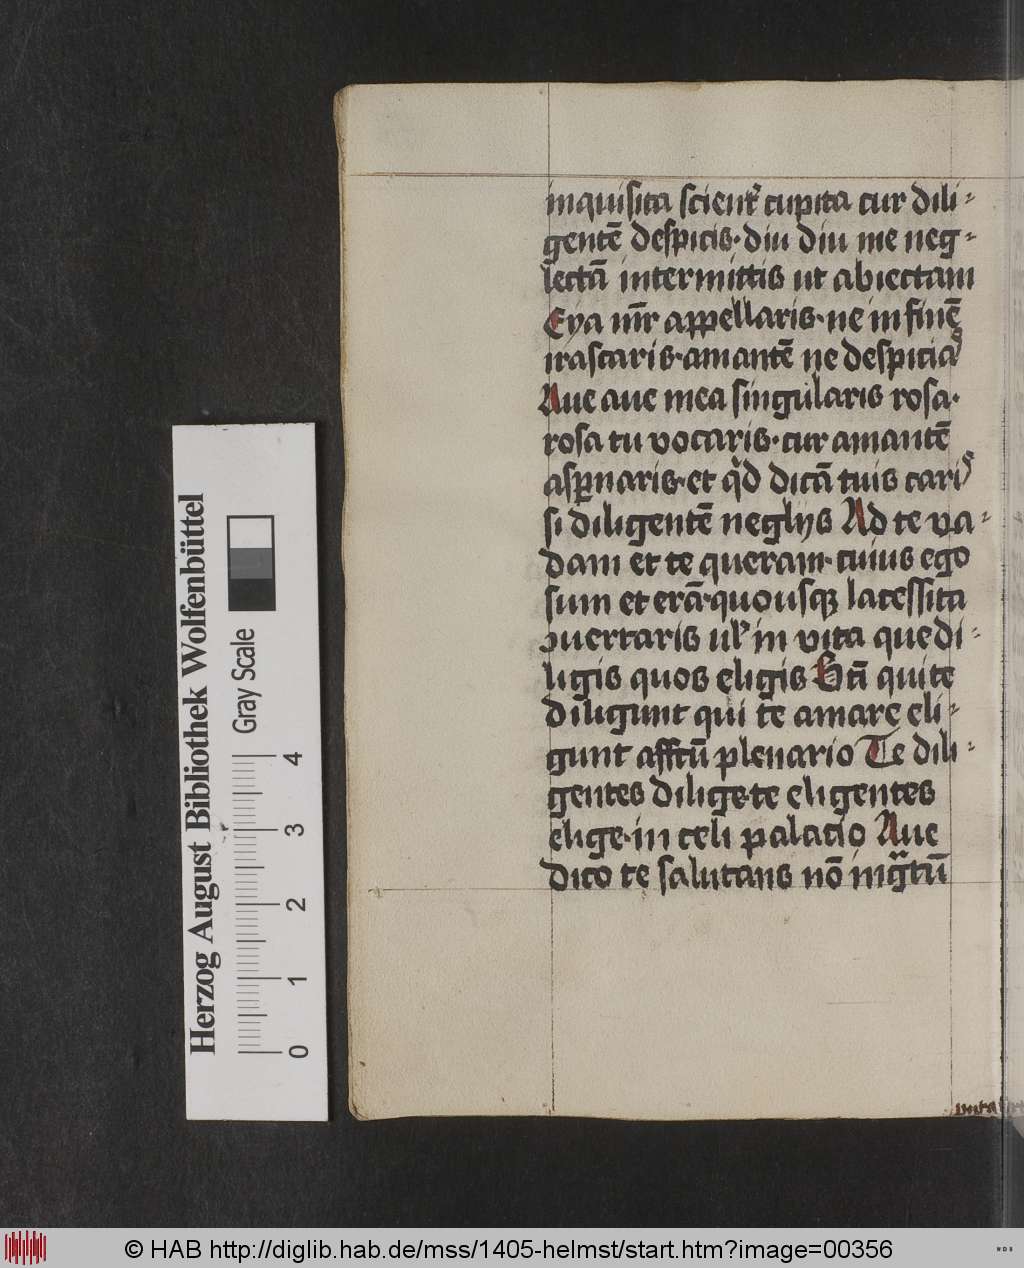 inquisita scient᷑ cupita cur dili⸗
gentē despicis · diu diu me neg⸗
lectā intermittis ut abiectam
Eya mr̄ appellaris · ne in finē
irascaris · amantē ne despicias
Aue aue mea singularis rosa ·
rosa tu vocaris · cur amantē
aspꝑnaris · et qͥd dicā tuis caris
si diligentē neglijs Ad te va⸗
dam et te queram · cuius ego
sum et erā · quousqꝫ lacessita
ꝯuertaris ul᷑ in vita que di⸗
ligis quos eligis Stā qui te
diligunt qui te amare eli⸗
gunt affctū plenario Te dili⸗
gentes dilige · te eligentes
elige · in celi palacio Aue
dico te salutans nō ingᷓtū
Herzog August Bibliothek Wolfenbüttel
Gray Scale
0 1 2 3 4
© HAB http://diglib.hab.de/mss/1405-helmst/start.htm?image=00356